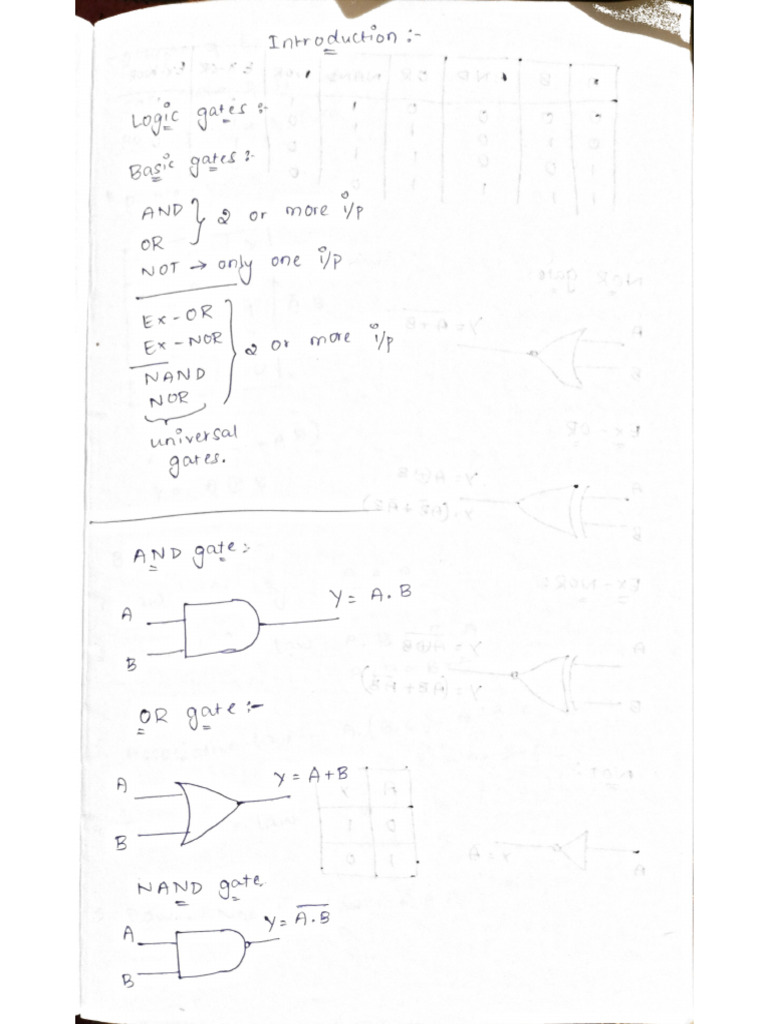 Introduction :-
Logic gates :-
Basic gates :-
AND
OR
} 2 or more i/p
NOT → only one i/p
Ex-OR
Ex-NOR
NAND
NOR
} 2 or more i/p
universal
gates.
AND gate :-
A
B
Y = A.B
OR gate :-
A
B
Y = A+B
NAND gate.
A
B
Y = A̅.̅B̅